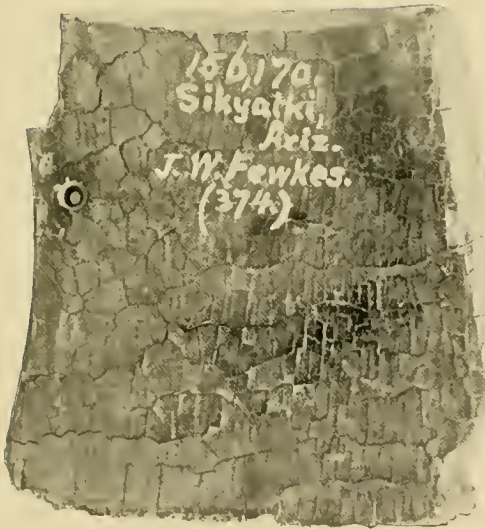 156,170.
Sikyatki,
Ariz.
J.W. Fewkes.
(374.)